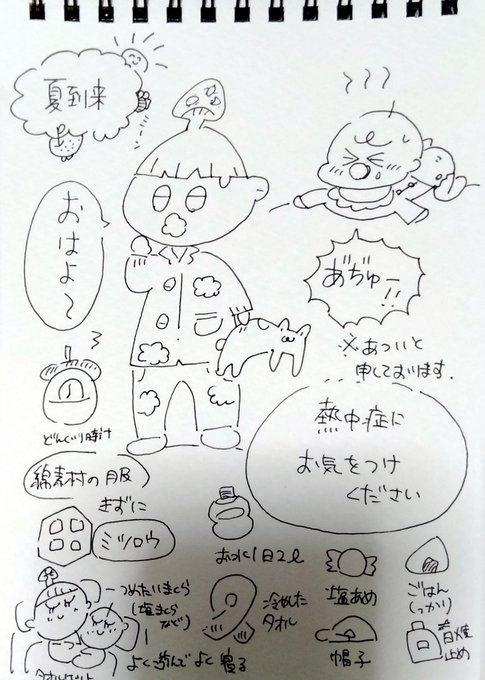 夏到来
おはよ〜
あぢゅー!!
※あついと
申しております.
どんぐり時計
熱中症に
お気をつけ
ください
綿素材の服
きずに
ミツロウ
おみず1日2ℓ
つめたいまくら
(塩まくら
など)
よく遊んでよく寝る
冷やした
タオル
塩あめ
帽子
ごはん
しっかり
日焼
止め